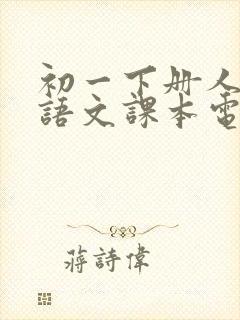 初一下册人
語文課本電
蔣詩偉